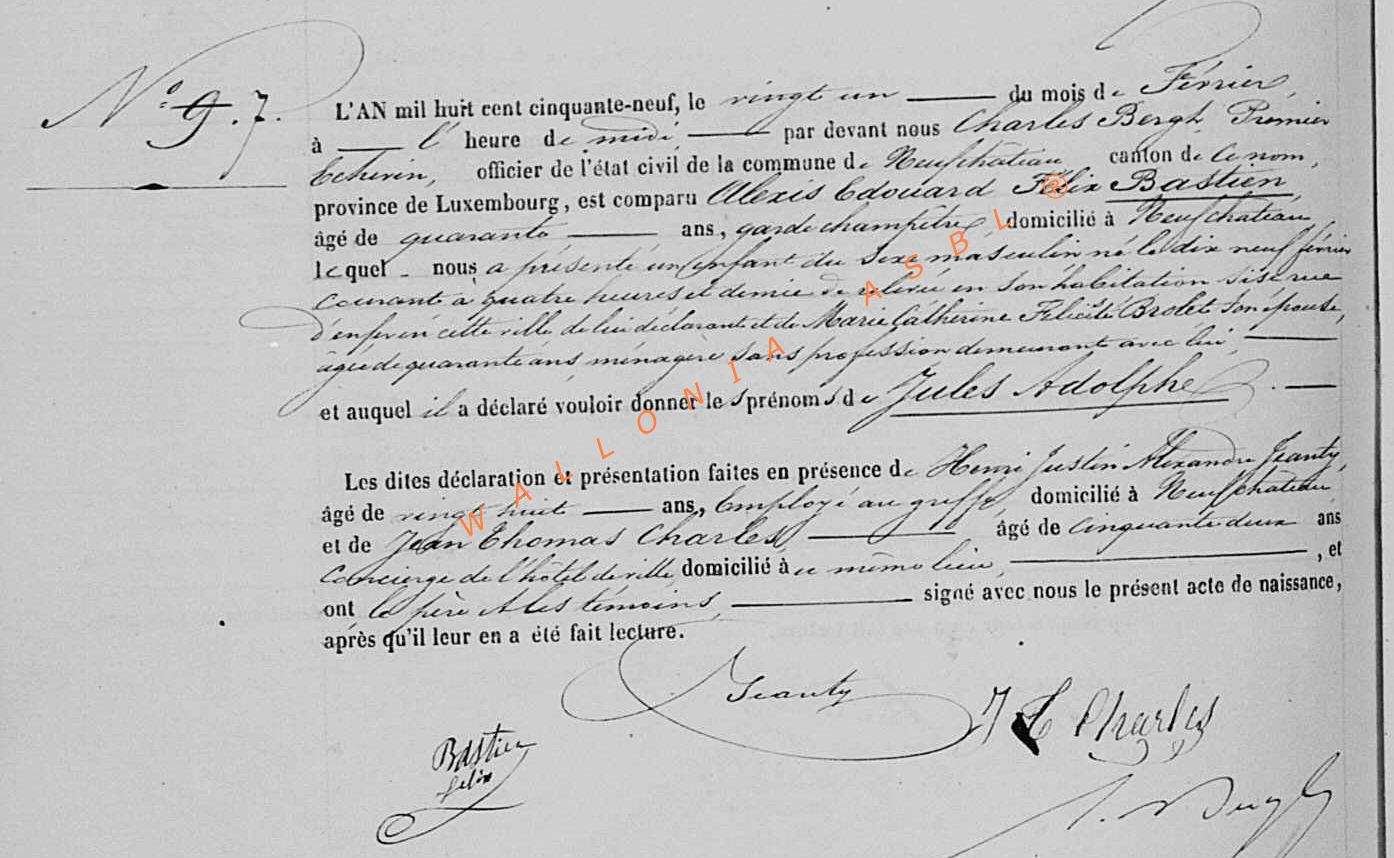 N° 9. 7.
L'AN mil huit cent cinquante-neuf, le vingt un du mois de Février,
à l' heure de midi, par devant nous Charles Bergh, Premier
Echevin, officier de l'état civil de la commune de Neufchâteau, canton de ce nom,
province de Luxembourg, est comparu Alexis Edouard Félix Bastien
âgé de quarante ans, garde champêtre, domicilié à Neufchateau
lequel nous a présenté un enfant du sexe masculin né le dix neuf février
courant à quatre heures et demie de relevée en son habitation sise rue
d'enfer en cette ville de lui déclarant et de Marie Catherine Félicité Brolet son épouse,
âgée de quarante ans, ménagère sans profession demeurant avec lui,
et auquel il a déclaré vouloir donner les prénoms de Jules Adolphe.
Les dites déclaration et présentation faites en présence de Henri Justin Alexandre Jeanty,
âgé de vingt huit ans, Employé au greffe, domicilié à Neufchâteau
et de Jean Thomas Charles, âgé de cinquante deux ans
concierge de l'hôtel de ville, domicilié à ce même lieu, , et
ont le père et les témoins, signé avec nous le présent acte de naissance,
après qu'il leur en a été fait lecture.
Jeanty
J T Charles
Bastien
felix
WALLONIA ASBL ®